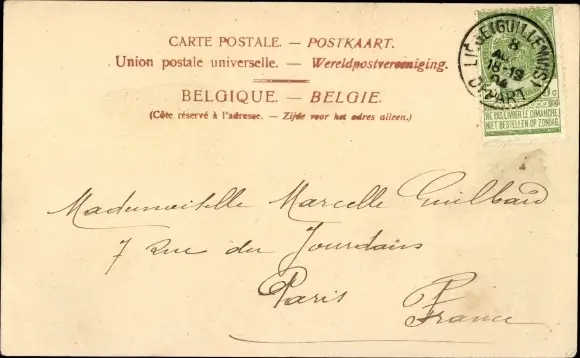 CARTE POSTALE. — POSTKAART.
Union postale universelle. — Wereldpostvereeniging.
BELGIQUE. — BELGIE.
(Côte réservé à l'adresse. — Zijde voor het adres alleen.)
8
18-19
04
DEPART
NE PAS LIVRER LE DIMANCHE
NIET BESTELLEN OP ZONDAG
Mademoiselle Marcelle Guilbaud
7 Rue du Jourdain
Paris France